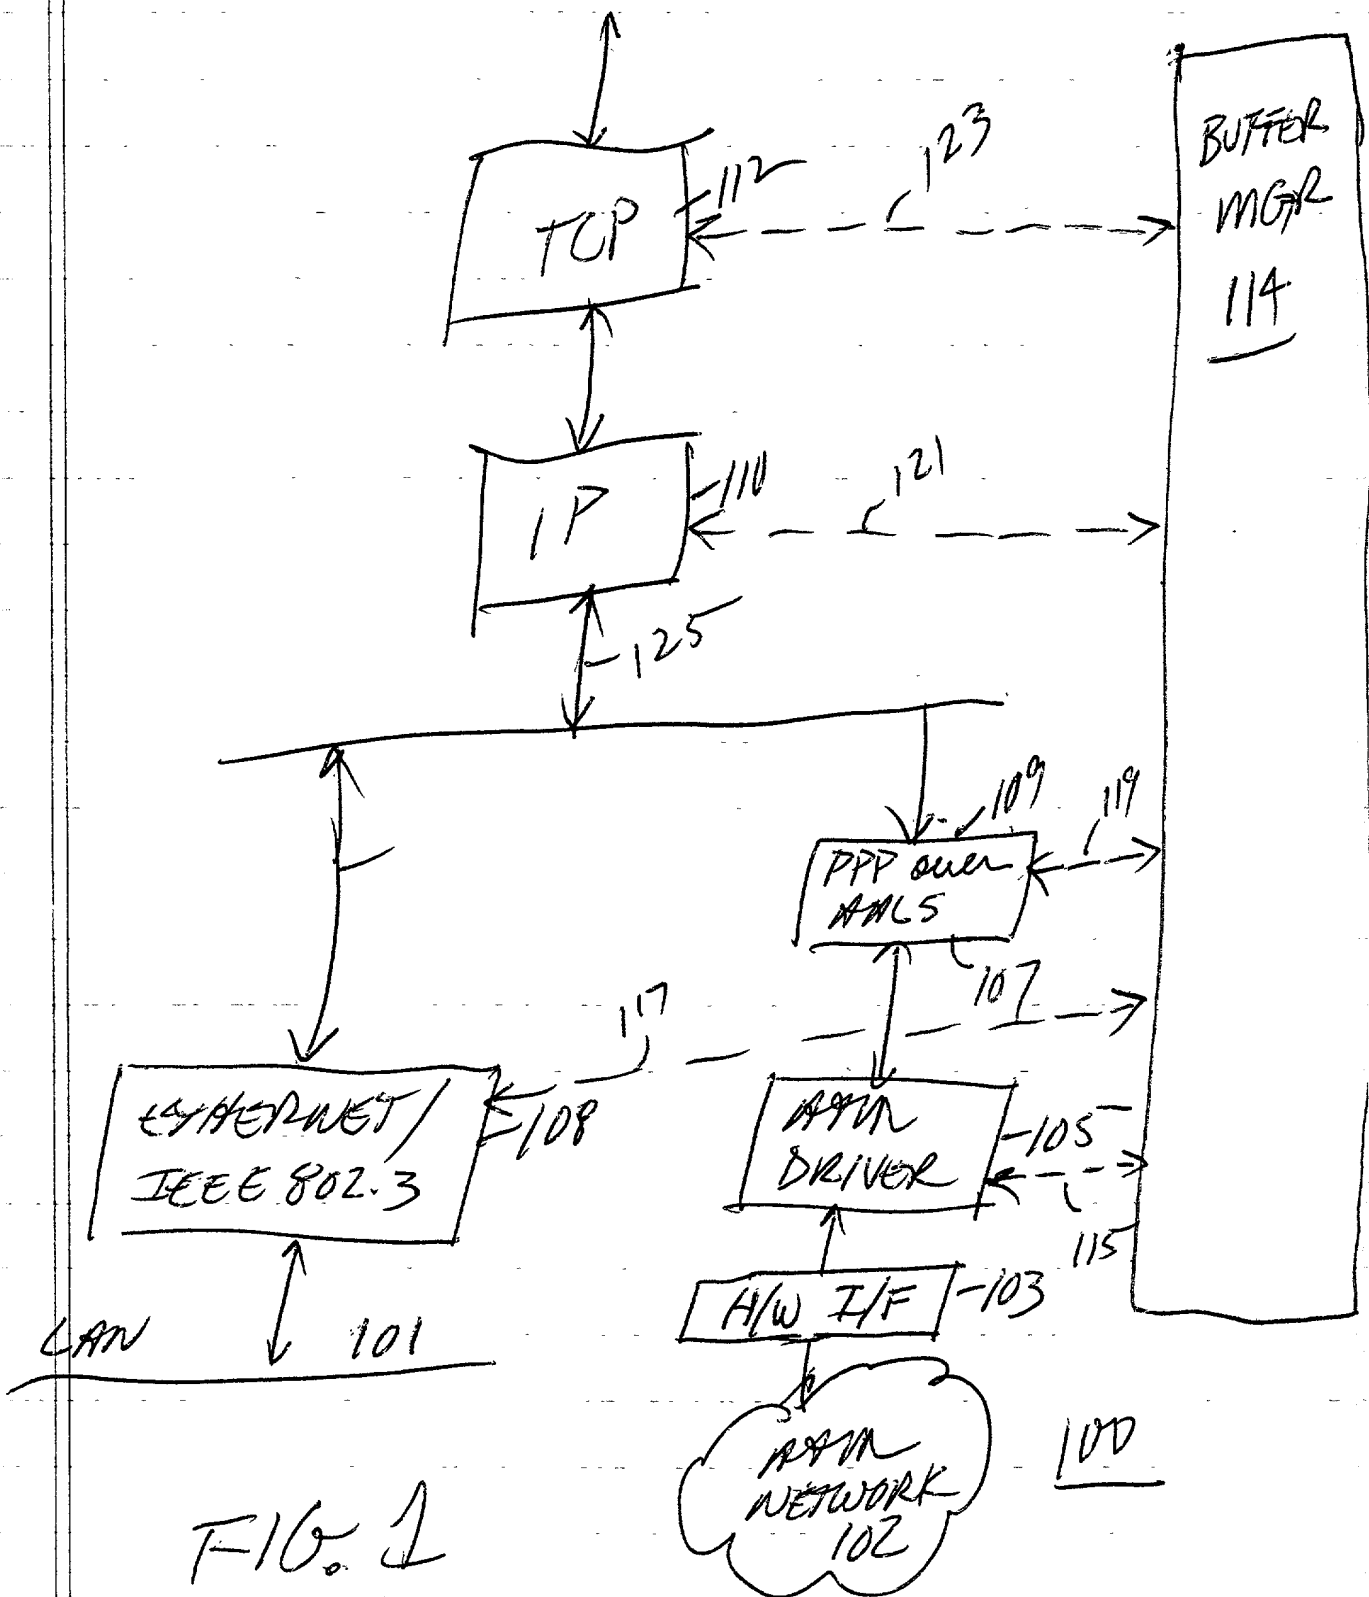 BUFFER
MGR
114
123
112
TCP
121
110
IP
125
109
119
PPP over
AAL5
107
117
ETHERNET/
IEEE 802.3
108
ATM
DRIVER
105
115
H/W I/F
103
LAN
101
ATM
NETWORK
102
100
FIG. 1